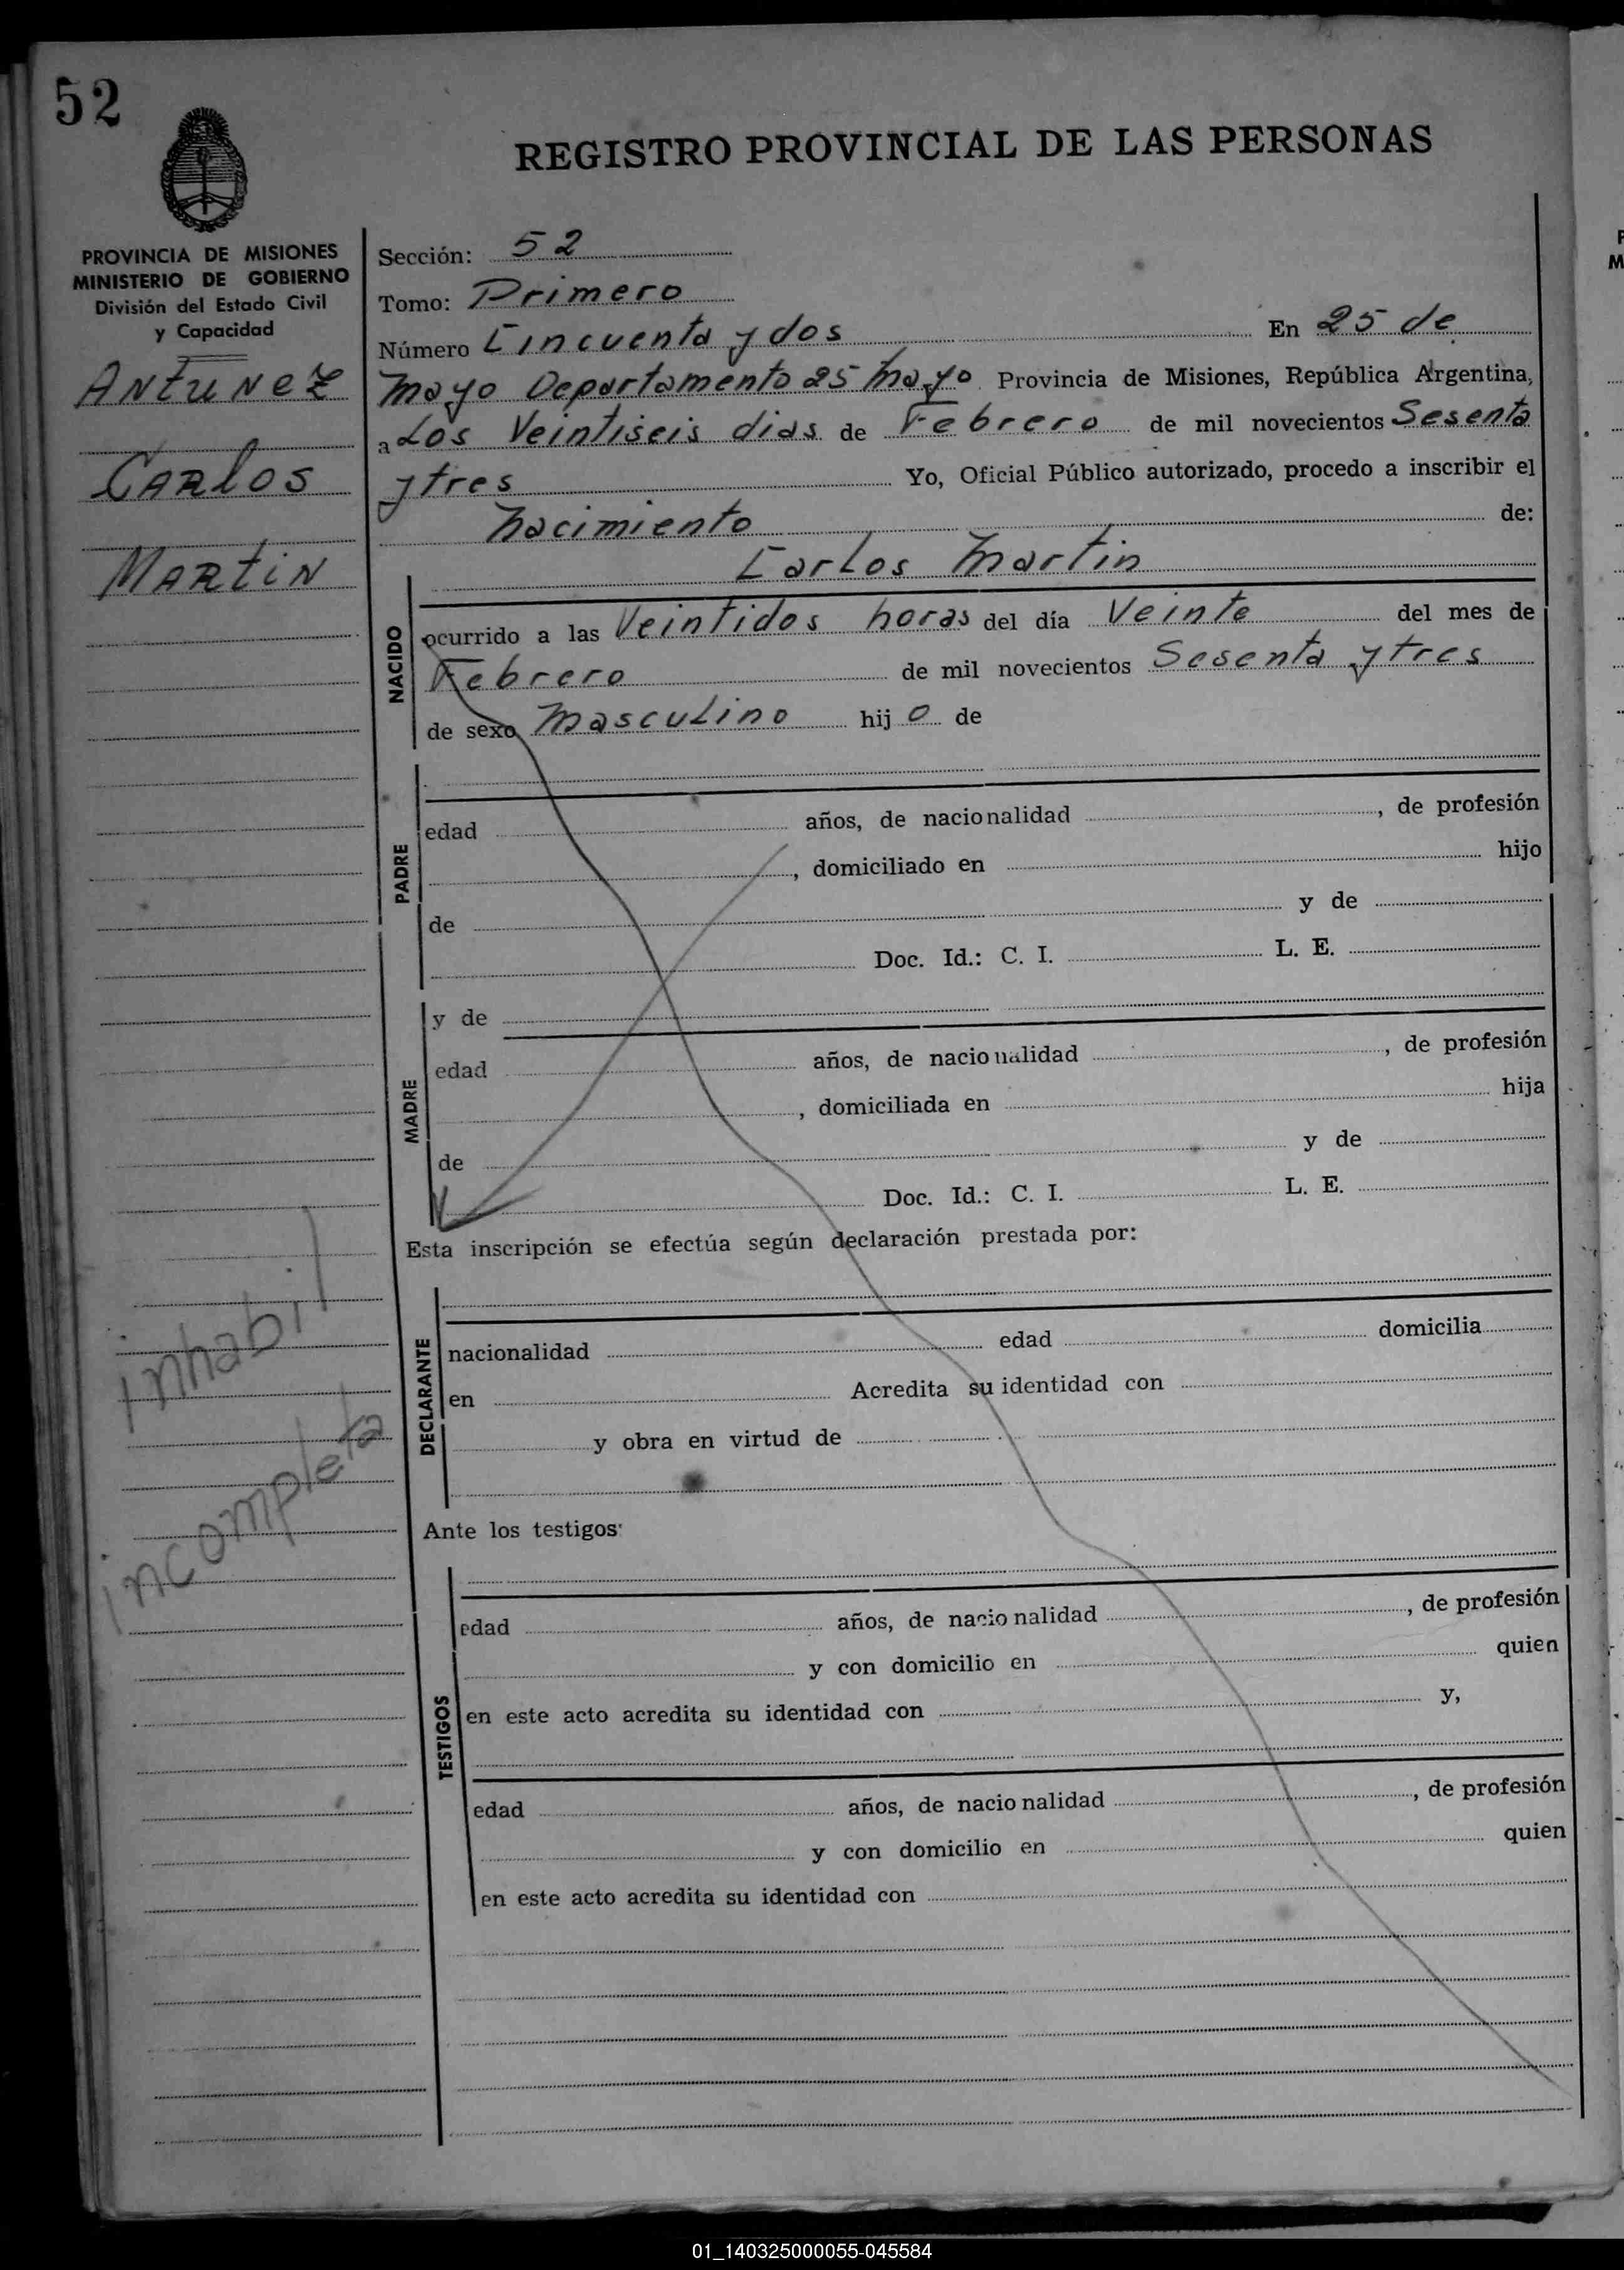 52
REGISTRO PROVINCIAL DE LAS PERSONAS
PROVINCIA DE MISIONES
MINISTERIO DE GOBIERNO
División del Estado Civil
y Capacidad
Antunez
Carlos
Martin
inhabil
incompleta
Sección: 52
Tomo: Primero
Número Cincuenta y dos En 25 de
mayo Departamento 25 mayo Provincia de Misiones, República Argentina,
a Los Veintiseis dias de Febrero de mil novecientos Sesenta
y tres Yo, Oficial Público autorizado, procedo a inscribir el
nacimiento de:
Carlos Martin
NACIDO
ocurrido a las Veintidos horas del día Veinte del mes de
Febrero de mil novecientos Sesenta y tres
de sexo masculino hij o de
PADRE
edad años, de nacionalidad , de profesión
, domiciliado en hijo
de y de
Doc. Id.: C. I. L. E.
MADRE
y de
edad años, de nacionalidad , de profesión
, domiciliada en hija
de y de
Doc. Id.: C. I. L. E.
Esta inscripción se efectúa según declaración prestada por:
DECLARANTE
nacionalidad edad domicilia
en Acredita su identidad con
y obra en virtud de
Ante los testigos:
TESTIGOS
edad años, de nacionalidad , de profesión
y con domicilio en quien
en este acto acredita su identidad con y,
edad años, de nacionalidad , de profesión
y con domicilio en quien
en este acto acredita su identidad con
01_140325000055-045584